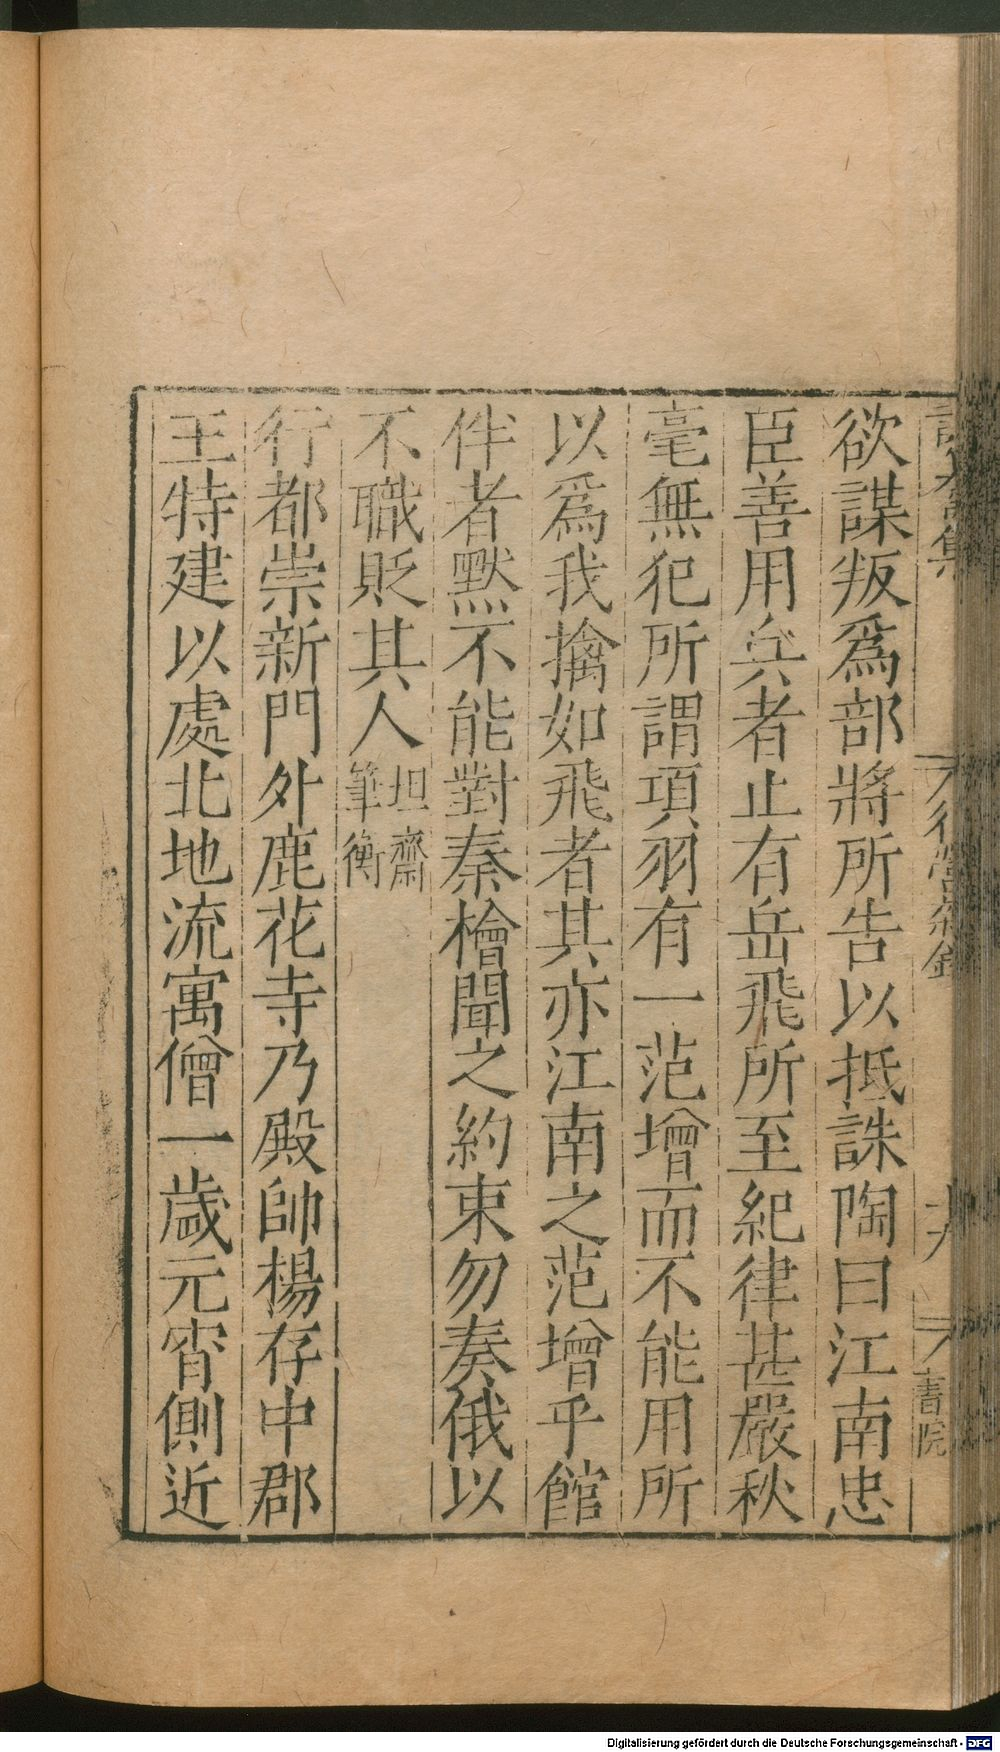 欲謀叛爲部將所告以抵誅陶曰江南忠
臣善用兵者止有岳飛所至紀律甚嚴秋
毫無犯所謂項羽有一范增而不能用所
以爲我擒如飛者其亦江南之范增乎館
伴者默不能對秦檜聞之約束勿奏俄以
不職貶其人坦齋筆衡
行都崇新門外鹿花寺乃殿帥楊存中郡
王特建以處北地流寓僧一歲元宵側近
書院
Digitalisierung gefördert durch die Deutsche Forschungsgemeinschaft - DFG